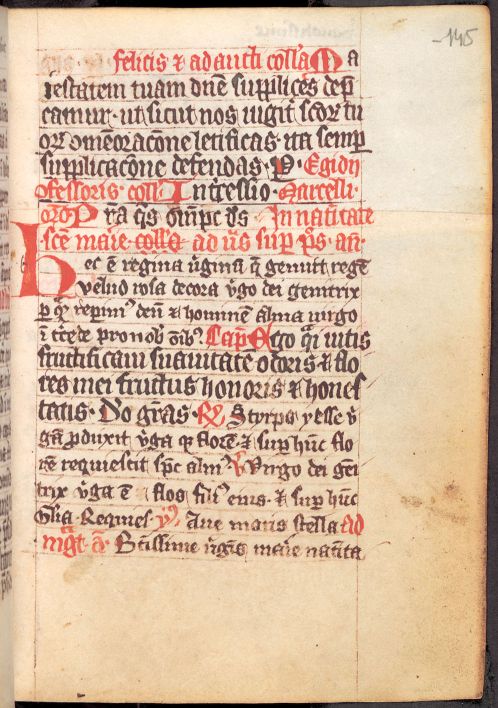 145
felicis ⁊ adaucti coll'a Ma
iestatem tuam dn̄e supplices dep̄
camur · ut sicut nos iugit̾ scōꝝ tu
oꝝ ɔmēoracōne letificas · ita semp̱
supplicacōne defendas · P · Egidii
ɔfessoris · coll' Intcessio · Marcelli ·
oro P ra q̄s om̄pc d̄s In natiuitate
sc̄e marie · coll'a · ad ūs sup̱ p̄s · an̄ ·
Hec ē regina ūginū q̄ genuit regē
uelud rosa decora ūgo dei genitrix
p̱ quā rep̱im̾ deū ⁊ hominem alma uirgo
īt̾cede pro nob̾ om̄ib̾ Cap̄ Ego q̄i uitis
fructificaui suauitatē odoris ⁊ flo
res mei fructus honoris ⁊ hones
tatis · Do gr̄as · R̷ Styrps yesse v̾
gā p̱duxit v̾ga qꝫ florē ⁊ sup̱ hūc flo
rē requiescit sp̄c alm̾ V̷ Virgo dei geī
trix v̾ga ē flos fili̾ eius · ⁊ sup̱ hūc
Gl̄ia · Requies · ym̄ · Aue maris stella ad
mḡt · a · Sc̄issime v̾gīs marie natiuita